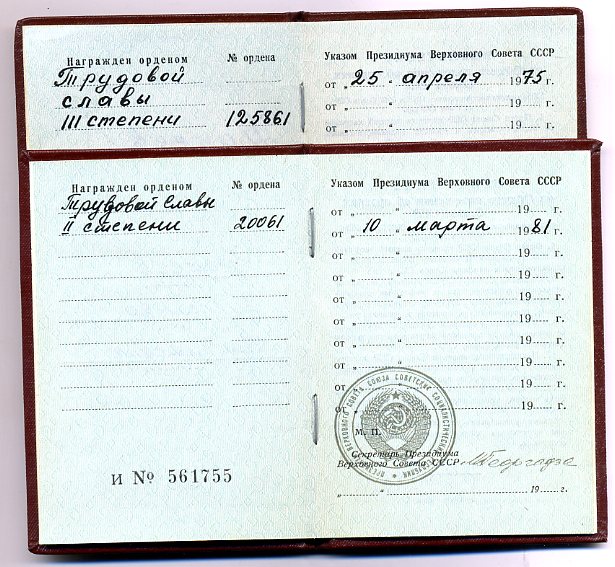 Награжден орденом № ордена Указом Президиума Верховного Совета СССР
Трудовой от „ 25 “ апреля 1975 г.
славы
III степени 125861 от „ “ 19 г.
Награжден орденом № ордена Указом Президиума Верховного Совета СССР
Трудовой Славы от „ “ 19 г.
II степени 20061 от „ 10 “ марта 1981 г.
от „ “ 19 г.
от „ “ 19 г.
от „ “ 19 г.
от „ “ 19 г.
от „ “ 19 г.
от „ “ 19 г.
от „ “ 19 г.
от „ “ 19 г.
М. П.
Секретарь Президиума
Верховного Совета СССР МГеоргадзе
И № 561755 „ “ 19 г.